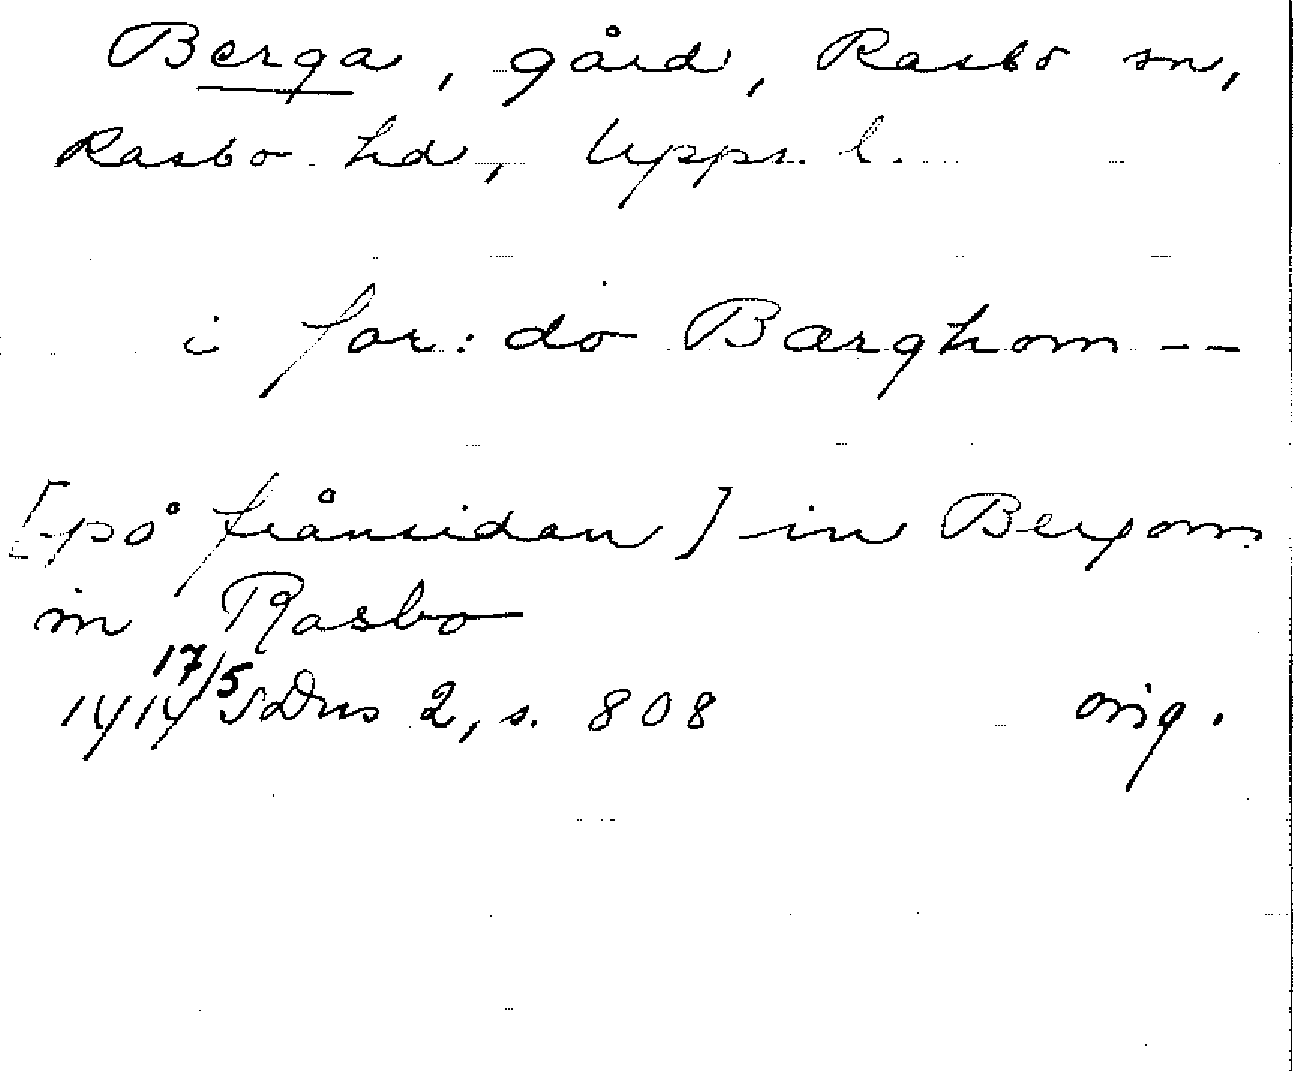 Berga, gård, Rasbo sn,
Rasbo hd, Upps. l.
i for: do Bærghom --
[på frånsidan] in Berjom
in Rasbo
1414 17/5 SDns 2, s. 808 orig.